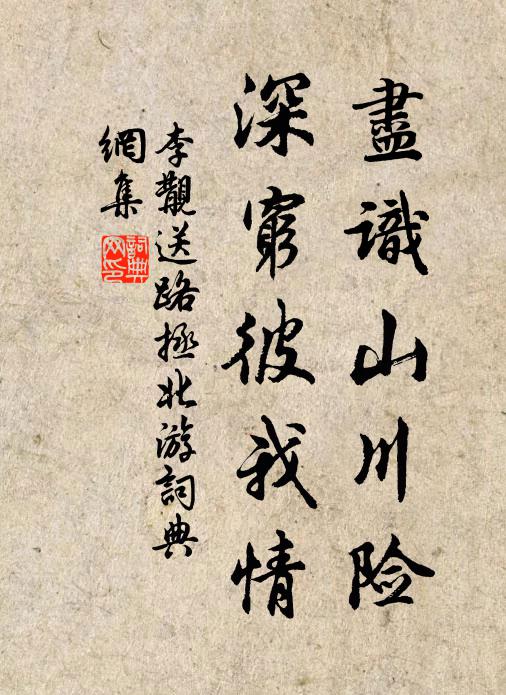 盡識山川险
深窮彼我情
李覯送路拯北游詞典
網集
詞典
网印